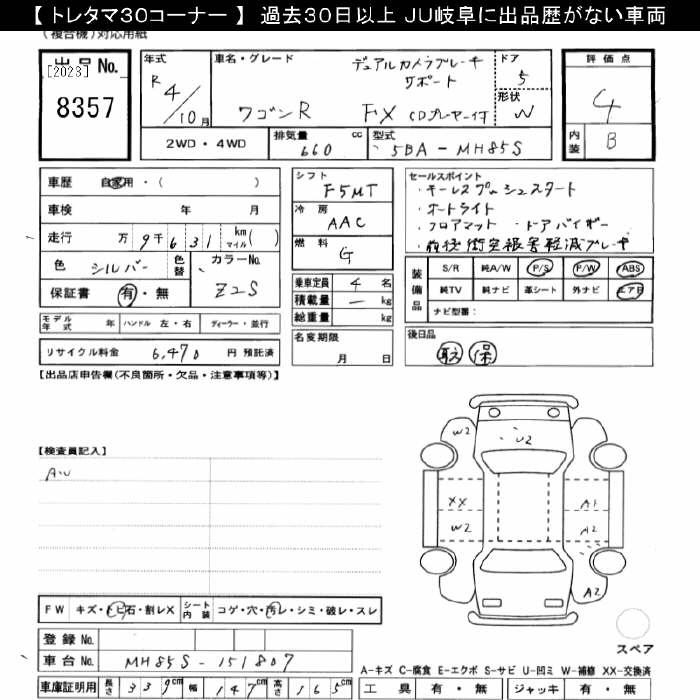 【 トレタマ３０コーナー 】 過去３０日以上 ＪＵ岐阜に出品歴がない車両
(複合機)対応用紙
出品No.
[2023]
8357
R 4/10月
車名・グレード
デュアルカメラブレーキサポート
ワゴンR FX CDプレーヤー付
ドア
5
形状
W
評価点
4
内装
B
2WD・4WD
排気量 660 cc
型式 5BA-MH85S
車歴 自家用・( )
車検 年 月
走行 万9千631 km マイル( )
色 シルバー 色替
カラーNo. Z2S
保証書 有・無
シフト F5MT
冷房 AAC
燃料 G
乗車定員 4 名
積載量 － kg
総重量 kg
セールスポイント
・キーレスプッシュスタート
・オートライト
・フロアマット ・ドアバイザー
・前後衝突被害軽減ブレーキ
装備品
S/R 純A/W P/S P/W ABS
純TV 純ナビ 革シート 外ナビ エアB
ナビ型番：
モデル年式 年 ハンドル 左・右 ディーラー・並行
リサイクル料金 6,470 円 預託済
名変期限 月 日
後日品
取 保
【出品店申告欄(不良箇所・欠品・注意事項等)】
【検査員記入】
AW
W2
U2
XX
W2
A1
A2
A2
スペア
FW キズ・トビ石・割レX シート内装 コゲ・穴・汚レ・シミ・破レ・スレ
登録No.
車台No. MH85S-151807
車庫証明用 長さ 339cm 幅 147cm 高さ 165cm
A-キズ C-腐食 E-エクボ S-サビ U-凹ミ W-補修 XX-交換済
工具 有・無 ジャッキ 有・無